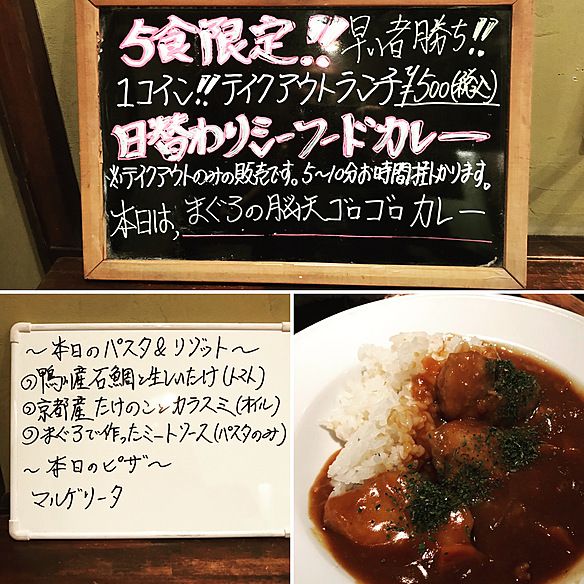 5食限定!! 早い者勝ち!!
1コイン!! テイクアウトランチ ¥500(税込)
日替わりシーフードカレー
※テイクアウトのみの販売です。5〜10分お時間掛かります。
本日は、まぐろの脳天ゴロゴロカレー
〜本日のパスタ&リゾット〜
①鴨川産石鯛と生しいたけ(トマト)
②京都産たけのことカラスミ(オイル)
③まぐろで作ったミートソース(パスタのみ)
〜本日のピザ〜
マルゲリータ